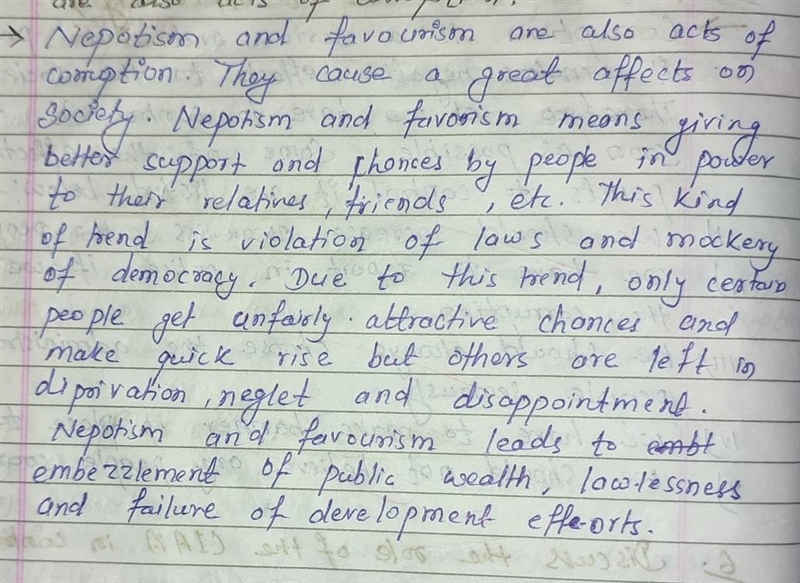 are also acts of corruption.
→ Nepotism and favourism are also acts of
corruption. They cause a great affects on
society. Nepotism and favorism means giving
better support and chances by people in power
to their relatives, friends, etc. This kind
of trend is violation of laws and mockery
of democracy. Due to this trend, only certain
people get unfairly attractive chances and
make quick rise but others are left in
diprivation, neglet and disappointment.
Nepotism and favourism leads to
embezzlement of public wealth, lawlessness
and failure of development efforts.
6. Discuss the role of the CIAA in